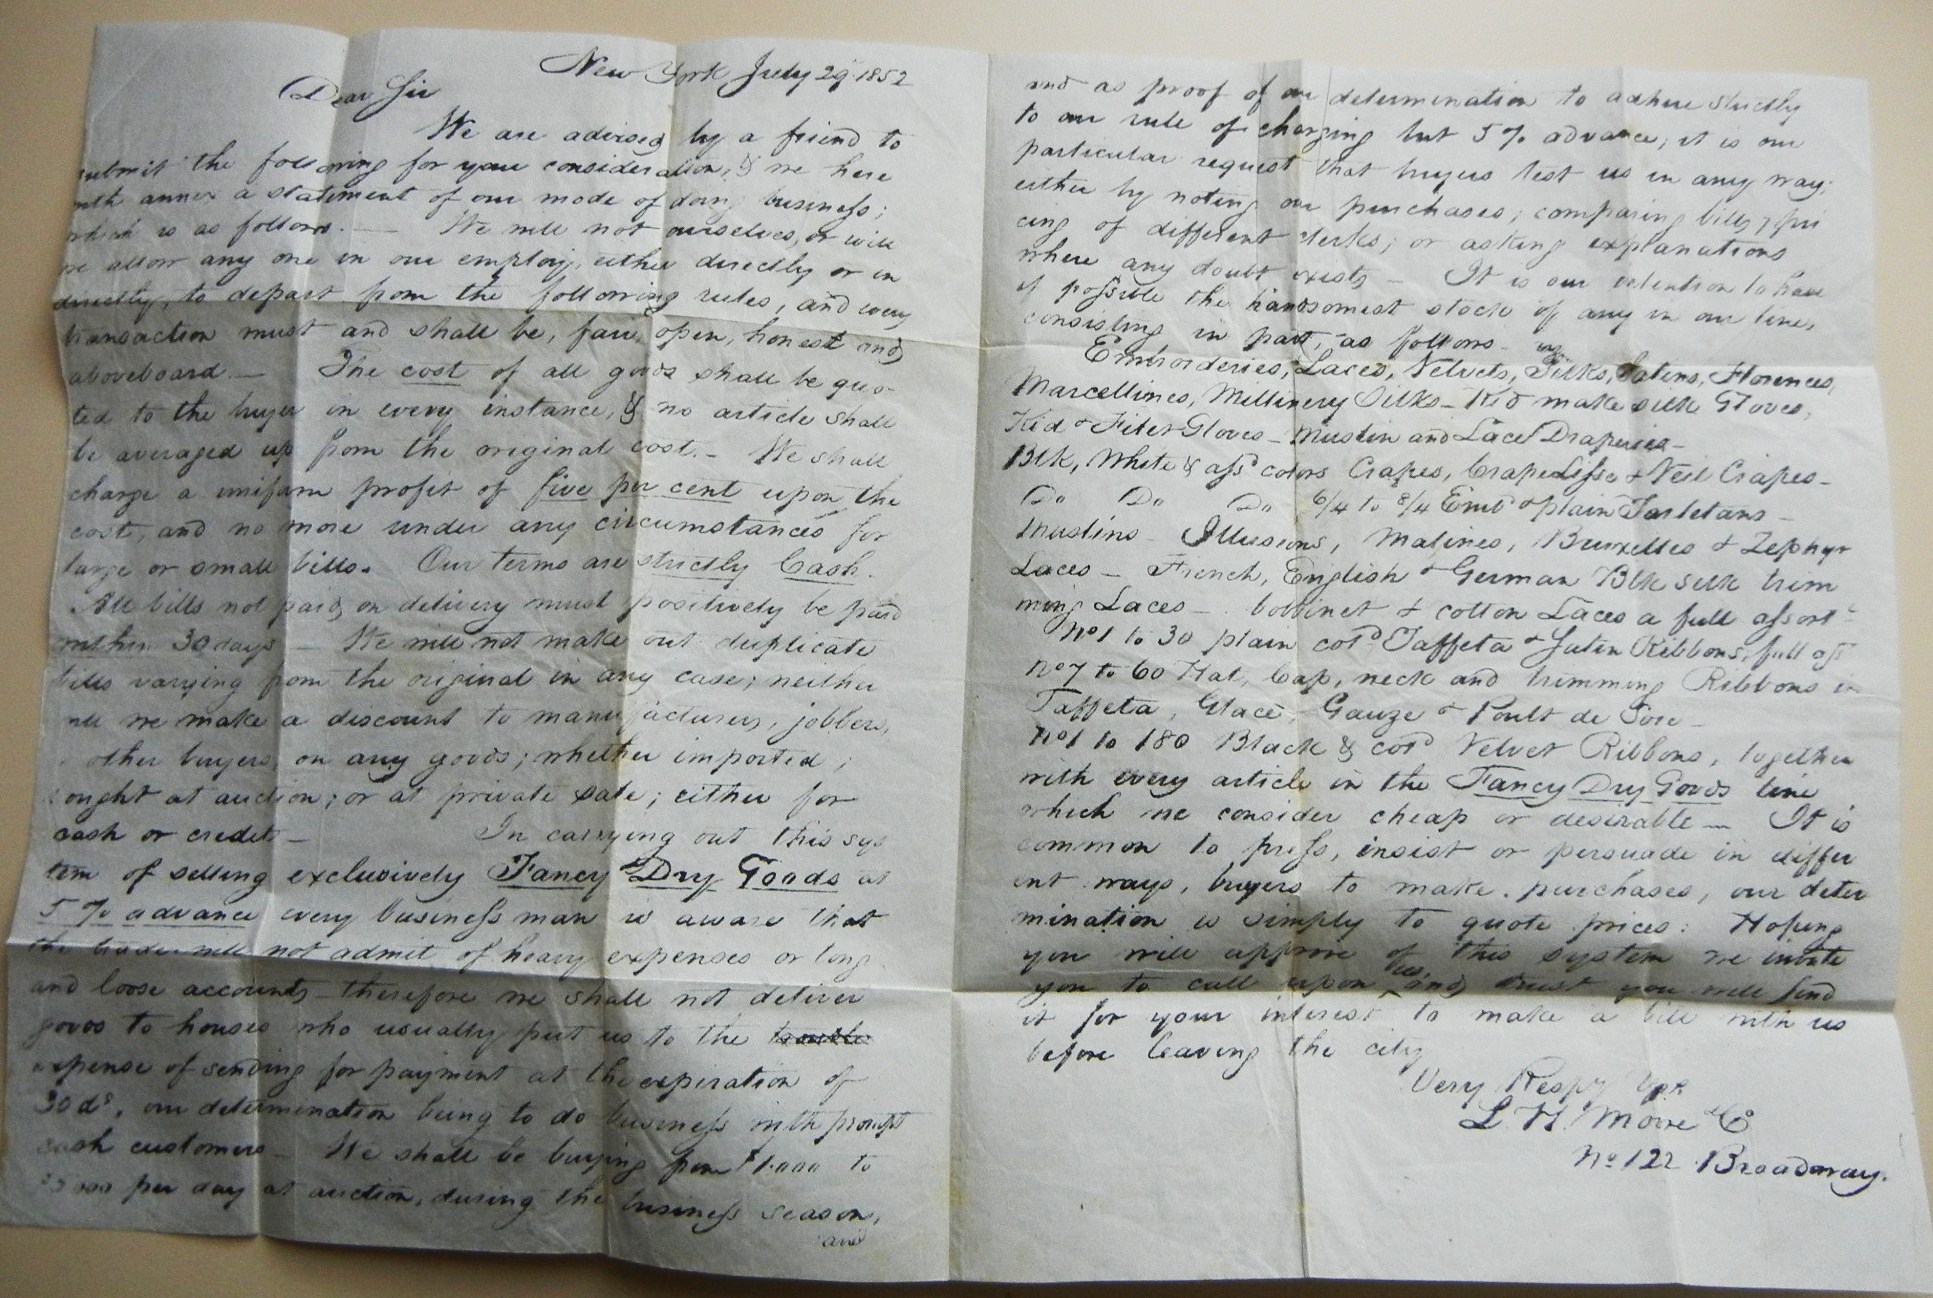 New York July 29 1852
Dear Sir
We are advised by a friend to
submit the following for your consideration, & we here
with annex a statement of our mode of doing business;
which is as follows. — We will not ourselves, or will
we allow any one in our employ, either directly or in
directly, to depart from the following rules, and every
transaction must and shall be, fair, open, honest and
aboveboard. — The cost of all goods shall be quo-
ted to the buyer in every instance, & no article shall
be averaged up from the original cost. — We shall
charge a uniform profit of five per cent upon the
cost, and no more under any circumstances for
large or small bills. Our terms are strictly Cash.
All bills not paid on delivery must positively be paid
within 30 days — We will not make out duplicate
bills varying from the original in any case; neither
will we make a discount to manufacturers, jobbers,
other buyers, on any goods; whether imported;
bought at auction; or at private sale; either for
cash or credit — In carrying out this sys
tem of selling exclusively Fancy Dry Goods at
5 % advance every business man is aware that
the trade will not admit of heavy expenses or long
and loose accounts — therefore we shall not deliver
goods to houses who usually put us to the trouble
expense of sending for payment at the expiration of
30 ds, our determination being to do business with prompt
cash customers — We shall be buying from $1.000 to
000 per day at auction, during the business season,
and
and as proof of our determination to adhere strictly
to our rule of charging but 5 % advance; it is our
particular request that buyers test us in any way:
either by noting our purchases; comparing bills; pri
cing of different clerks; or asking explanations
where any doubt exists — It is our intention to have
if possible the handsomest stock of any in our line,
consisting in part, as follows —
Embroideries, Laces, Velvets, Silks, Satins, Florences,
Marcellines, Millinery Silks — Kid make silk Gloves,
Kid & Filet Gloves — Muslin and Lace Draperies —
Blk, White & assd colors Crapes, Crape Lisse & Veil Crapes —
Do Do Do 6/4 to 8/4 Embd & plain Tarletans —
Muslins — Illusions, Malines, Bruxelles & Zephyr
Laces — French, English & German Blk silk trim
ming Laces — bobbinet & cotton Laces a full assort
No 1 to 30 plain cold Taffeta & Satin Ribbons, full ass
No 7 to 60 Hat, Cap, neck and trimming Ribbons in
Taffeta, Glace, Gauze & Poult de Soie —
No 1 to 180 Black & cold Velvet Ribbons, together
with every article in the Fancy Dry Goods line
which we consider cheap or desirable — It is
common to press, insist or persuade in differ
ent ways, buyers to make purchases, our deter
mination is simply to quote prices: Hoping
you will approve of this system we invite
you to call upon us, and trust you will find
it for your interest to make a bill with us
before leaving the city
Very Respy Yrs
L. H. Moore & Co
No 122 Broadway.